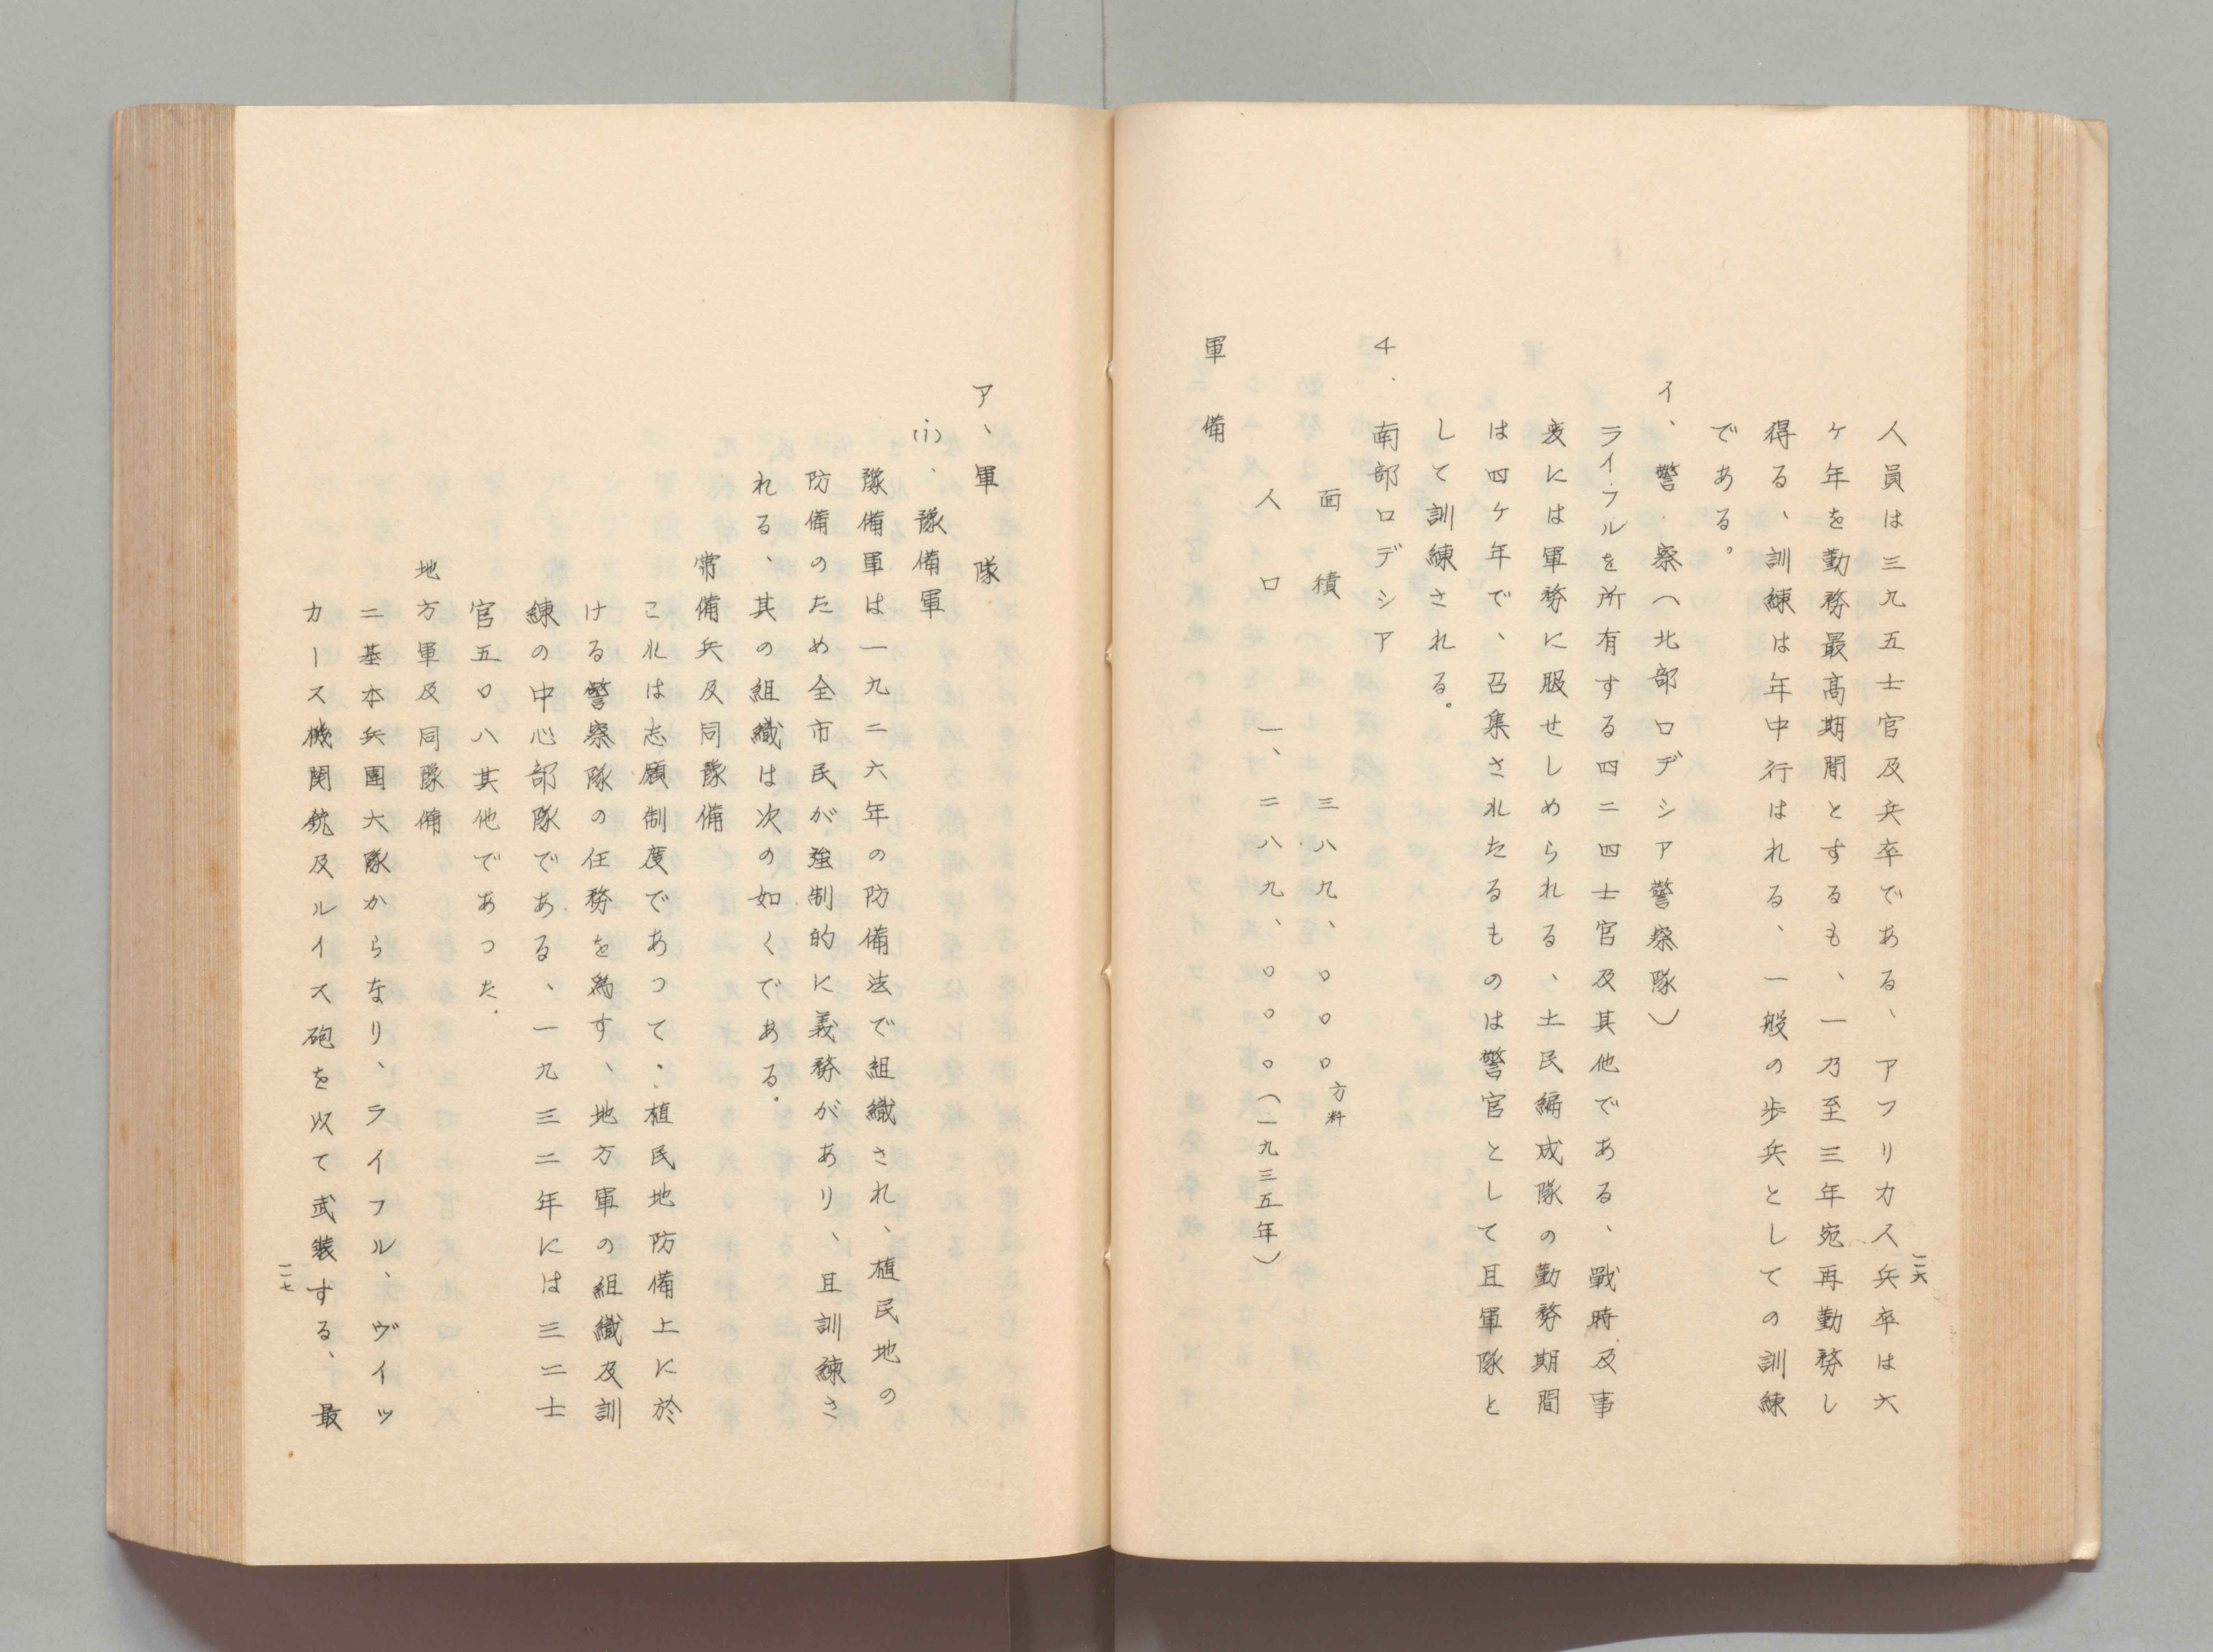 一二六
人員は三九五士官及兵卒である、アフリカ人兵卒は六
ケ年を勤務最高期間とするも、一乃至三年宛再勤務し
得る、訓練は年中行はれる、一般の歩兵としての訓練
である。
イ、警察（北部ロデシア警察隊）
ライフルを所有する四二四士官及其他である、戰時及事
変には軍務に服せしめられる、土民編成隊の勤務期間
は四ケ年で、召集されたるものは警官として且軍隊と
して訓練される。
4.南部ロデシア
面積 三八九、〇〇〇方粁
人口 一、二八九、〇〇〇（一九三五年）
軍備
ア、軍隊
(i)、豫備軍
豫備軍は一九二六年の防備法で組織され、植民地の
防備のため全市民が強制的に義務があり、且訓練さ
れる、其の組織は次の如くである。
常備兵及同豫備
これは志願制度であつて、植民地防備上に於
ける警察隊の任務を為す、地方軍の組織及訓
練の中心部隊である、一九三二年には三二士
官五〇八其他であつた。
地方軍及同豫備
二基本兵團大隊からなり、ライフル、ヴイツ
カース機関銃及ルイス砲を以て武装する、最
一二七